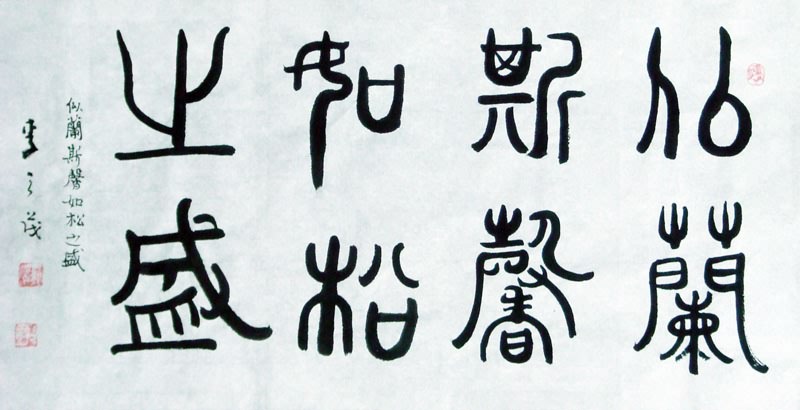 佀蘭
斯馨
如松
之盛
似蘭斯馨如松之盛